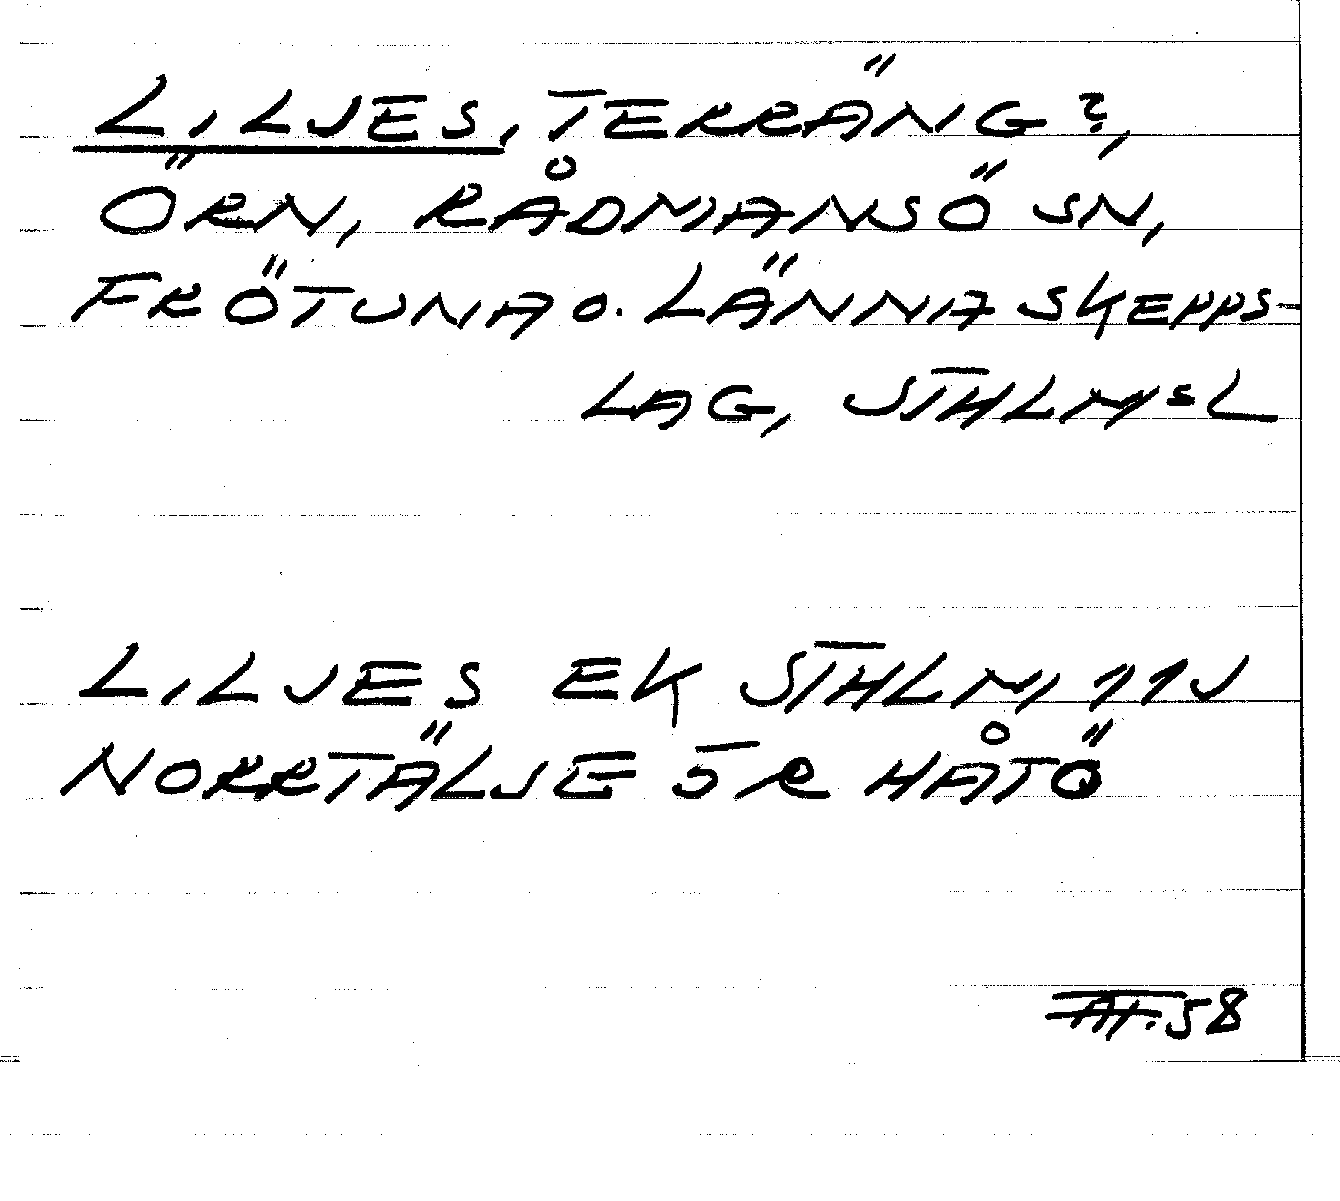 LILJES, TERRÄNG?,
ÖRN, RÅDMANSÖ SN,
FRÖTUNA O. LÄNNA SKEPPS-
LAG, STHLMS L
LILJES EK STHLM 11J
NORRTÄLJE 5R HÅTÖ
58